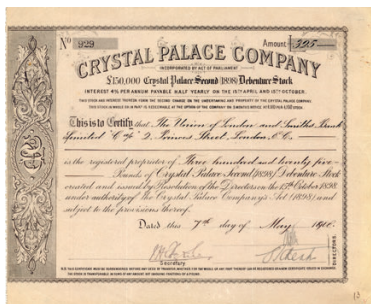 No 929 Amount £325
CRYSTAL PALACE COMPANY
INCORPORATED BY ACT OF PARLIAMENT
£150,000 Crystal Palace Second (1898) Debenture Stock
INTEREST 4% PER ANNUM PAYABLE HALF YEARLY ON THE 15TH APRIL AND 15TH OCTOBER.
This is to Certify that The Union of London and Smiths Bank
Limited "C a/c" 2, Princes Street, London, E.C.
is the registered proprietor of Three hundred and twenty five
Pounds of Crystal Palace Second (1898) Debenture Stock
created and issued by Resolution of the Directors on the 15th October 1898
under authority of the Crystal Palace Company's Act (1898) and
subject to the provisions thereof.
Dated this 7th day of May 1910.
Secretary
DIRECTORS.
13